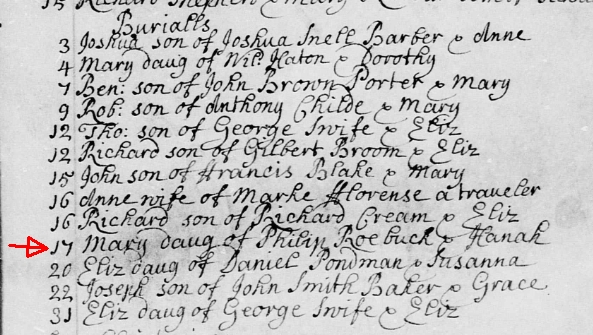 15 Richard
Burialls
3 Joshua son of Joshua Snell Barber & Anne
4 Mary daug of Wil: Haton & Dorothy
7 Ben: son of John Brown Porter & Mary
9 Rob: son of Anthony Childe & Mary
12 Tho: son of George Swife & Eliz
12 Richard son of Gilbert Broom & Eliz
15 John son of Francis Blake & Mary
16 Anne wife of Marke Florense a traveler
16 Richard son of Richard Cream & Eliz
17 Mary daug of Philip Roebuck & Hanah
20 Eliz daug of Daniel Pondman & Susanna
22 Joseph son of John Smith Baker & Grace
31 Eliz daug of George Swife & Eliz